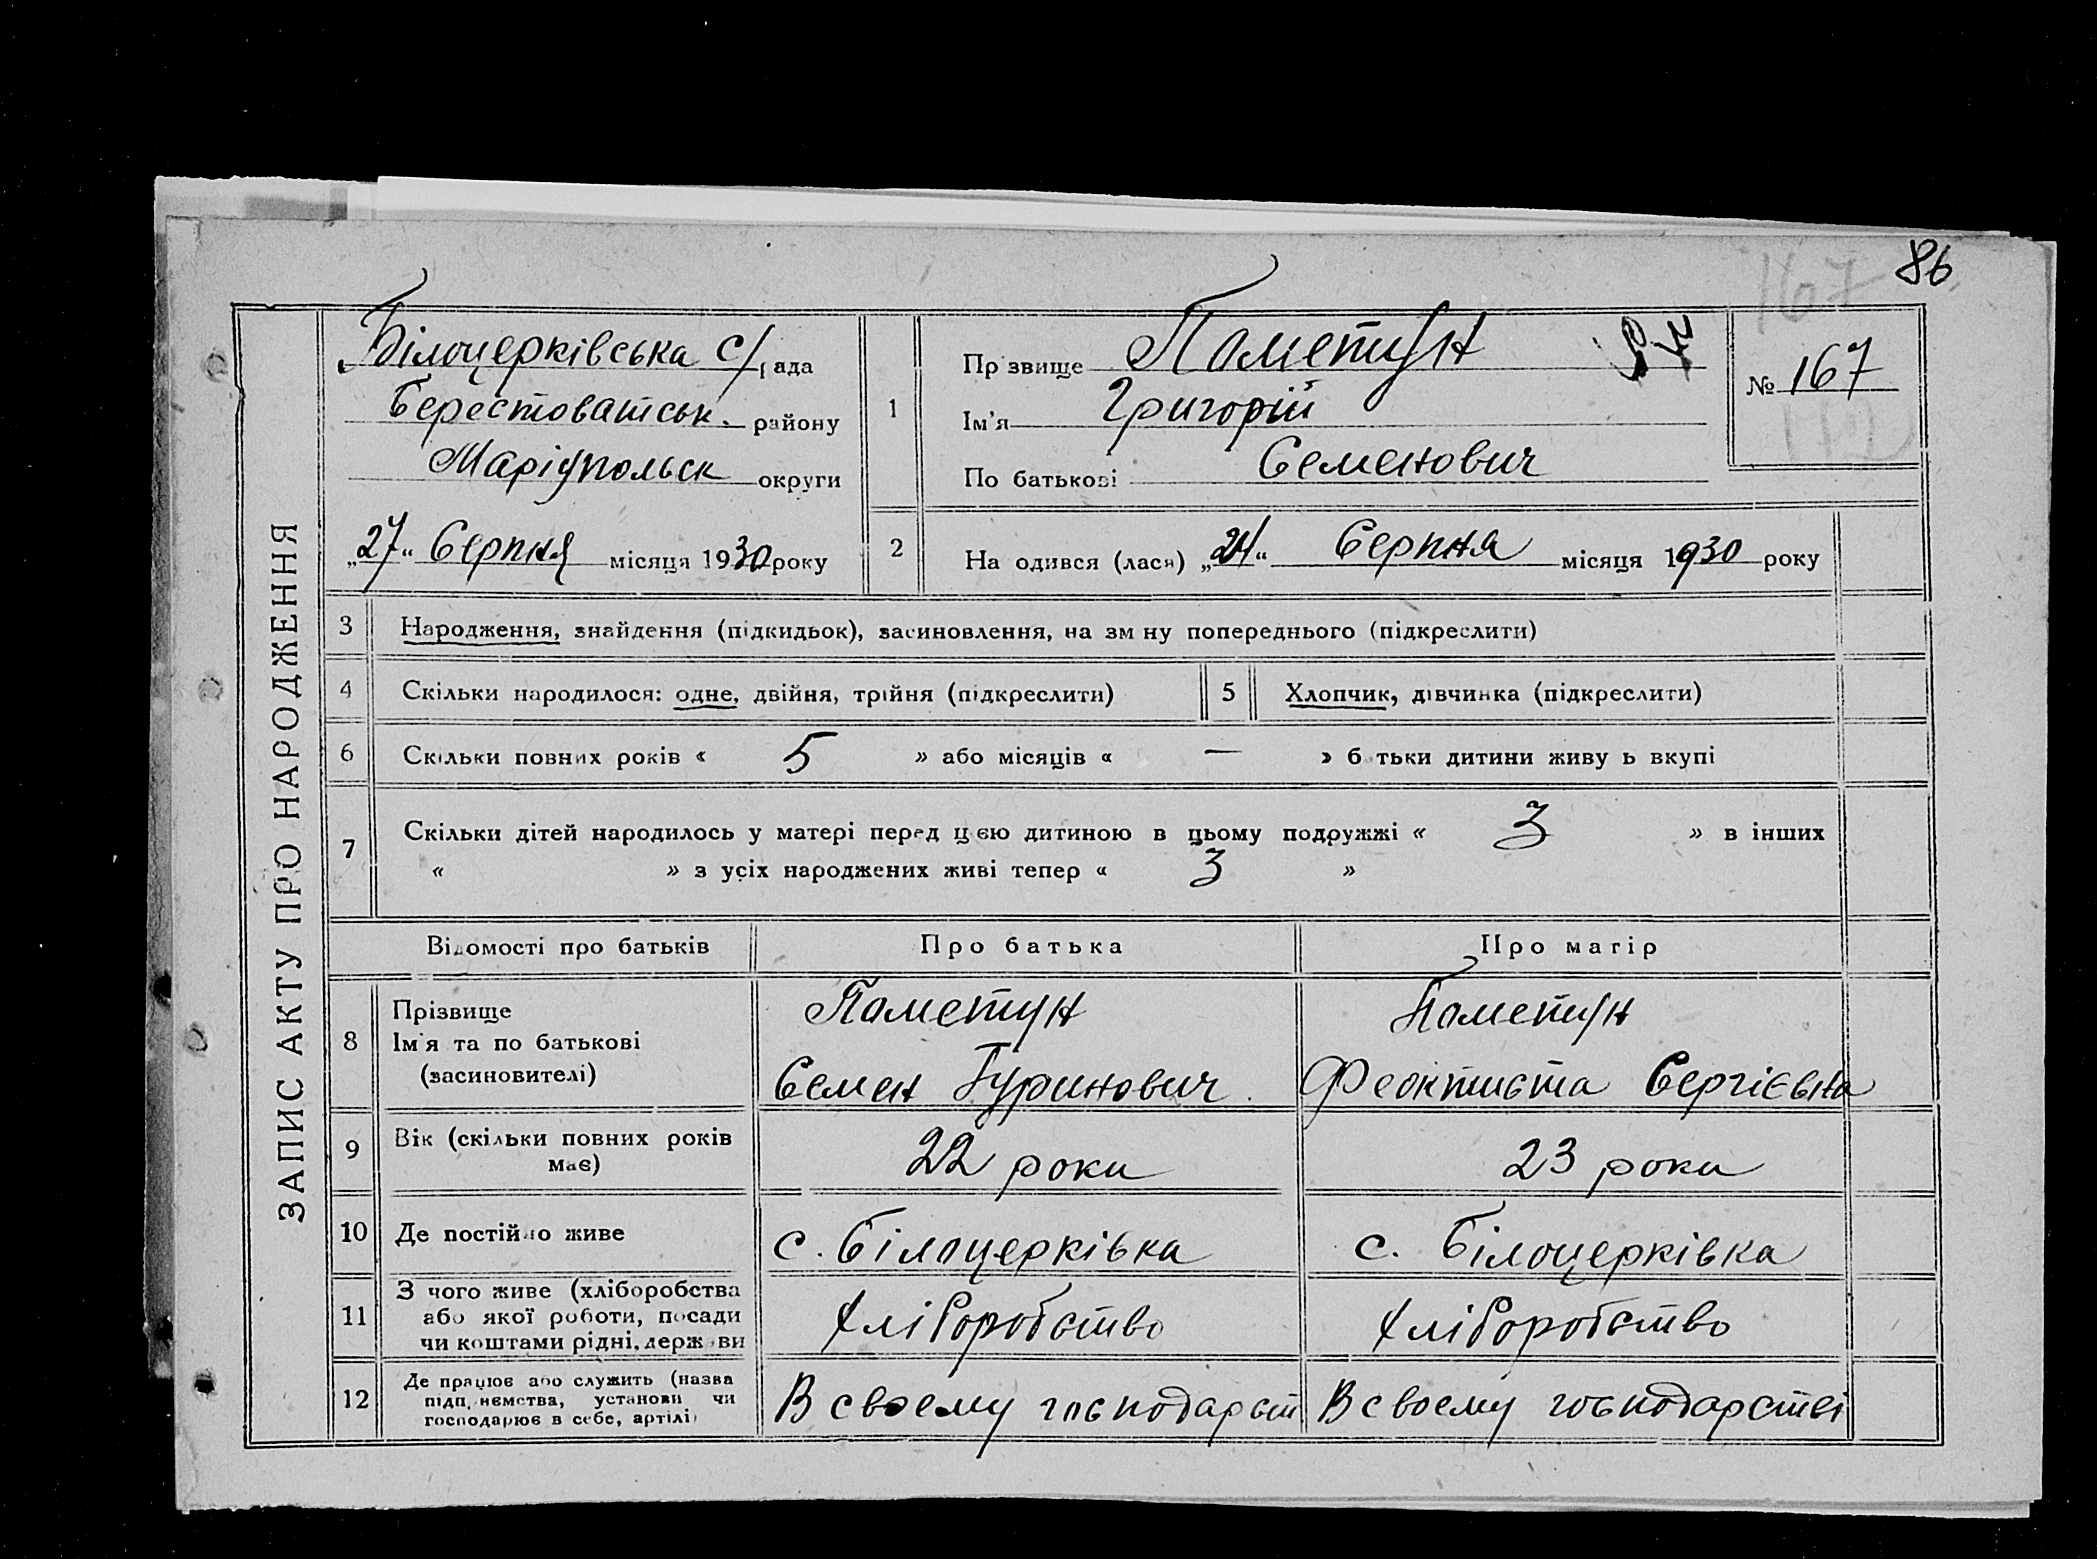 86
167
ЗАПИС АКТУ ПРО НАРОДЖЕННЯ
Білоцерківська с/рада
Берестоватськ. району
Маріупольск округи
„27“ Серпня місяця 1930 року
1
Прзвище Паметун
Ім'я Григорій
По батькові Семенович
№ 167
2
На одився (лася) „24“ Серпня місяця 1930 року
3 Народження, знайдення (підкидьок), засиновлення, на зм ну попереднього (підкреслити)
4 Скільки народилося: одне, двійня, трійня (підкреслити)
5 Хлопчик, дівчинка (підкреслити)
6 Скільки повних років « 5 » або місяців « — » б тьки дитини живу ь вкупі
7 Скільки дітей народилось у матері перед цією дитиною в цьому подружжі « 3 » в інших
« » з усіх народжених живі тепер « 3 »
Відомості про батьків Про батька Про матір
8 Прізвище
Ім'я та по батькові
(засиновителі)
Паметун
Семен Гуринович
Паметун
Феоктиста Сергієвна
9 Вік (скільки повних років
має)
22 роки
23 роки
10 Де постійно живе
с. Білоцерківка
с. Білоцерківка
11 З чого живе (хліборобства
або якої роботи, посади
чи коштами рідні, держ ви
Хліборобство
Хліборобство
12 Де працює або служить (назва
підп.иємства, установи чи
господарює в себе, артілі)
В своему господарст
В своему господарстві